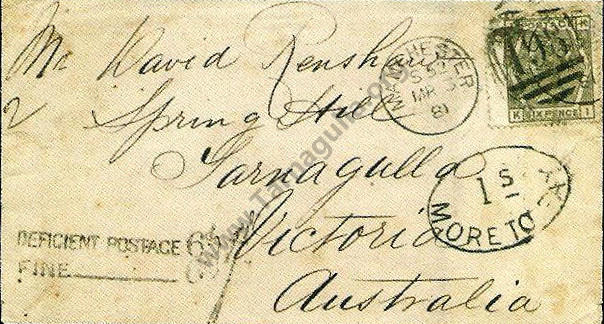 Mr David Renshaw
2 Spring Hill
Tarnagulla
Victoria
Australia
MANCHESTER
MR
81
POSTAGE
498
K SIX PENCE I
1 S
MORE TO
DEFICIENT POSTAGE 6
FINE
www.Tarnagulla.com